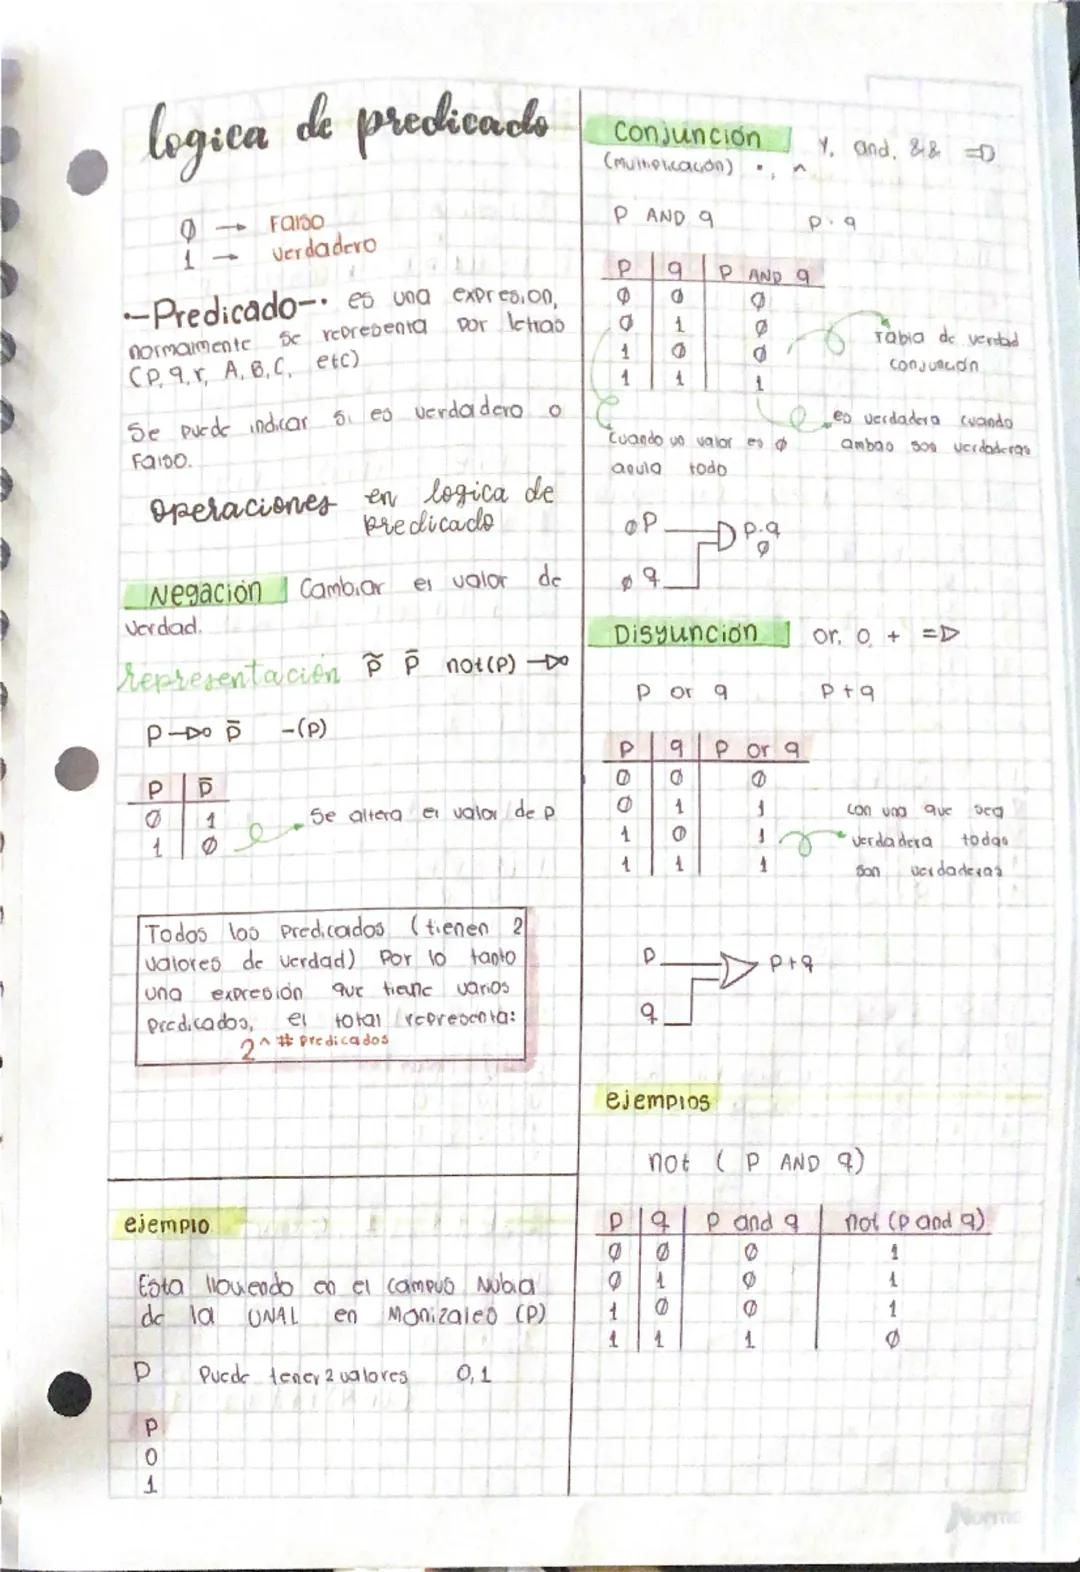 logica de predicado
∅ → Falso
1 → verdadero
·-Predicado-· es una expresion,
normalmente se representa por letras
(P, q, r, A, B, C, etc)
Se puede indicar si es verdadero o
Falso.
operaciones en logica de
predicado
Negación Cambiar el valor de
verdad.
representación p̃ p̄ not(P) -▷o
P-▷o p̄ -(P)
P | p̄
∅ | 1
1 | ∅
Se altera el valor de P
Todos los predicados (tienen 2
valores de verdad) Por lo tanto
una expresión que tiene varios
predicados, el total representa:
2^# predicados
ejemplo
Esta lloviendo en el campus Nubia
de la UNAL en Manizales (P)
P Puede tener 2 valores 0,1
P
0
1
Conjunción Y, and, && =D
(multiplicación) ·, ^
P AND q P·q
P | q | P AND q
∅ | ∅ | ∅
∅ | 1 | ∅
1 | ∅ | ∅
1 | 1 | 1
Tabla de verdad
conjunción
Cuando un valor es ∅
anula todo
es verdadera cuando
ambas son verdaderas
∅ P P·q
∅
∅ q
Disyuncion or, o, + =▷
P or q P+q
P | q | P or q
∅ | ∅ | ∅
∅ | 1 | 1
1 | ∅ | 1
1 | 1 | 1
con una que sea
verdadera todas
son verdaderas
P P+q
q
ejemplos
not (P AND q)
P | q | P and q | not (P and q)
∅ | ∅ | ∅ | 1
∅ | 1 | ∅ | 1
1 | ∅ | ∅ | 1
1 | 1 | 1 | ∅
Norma